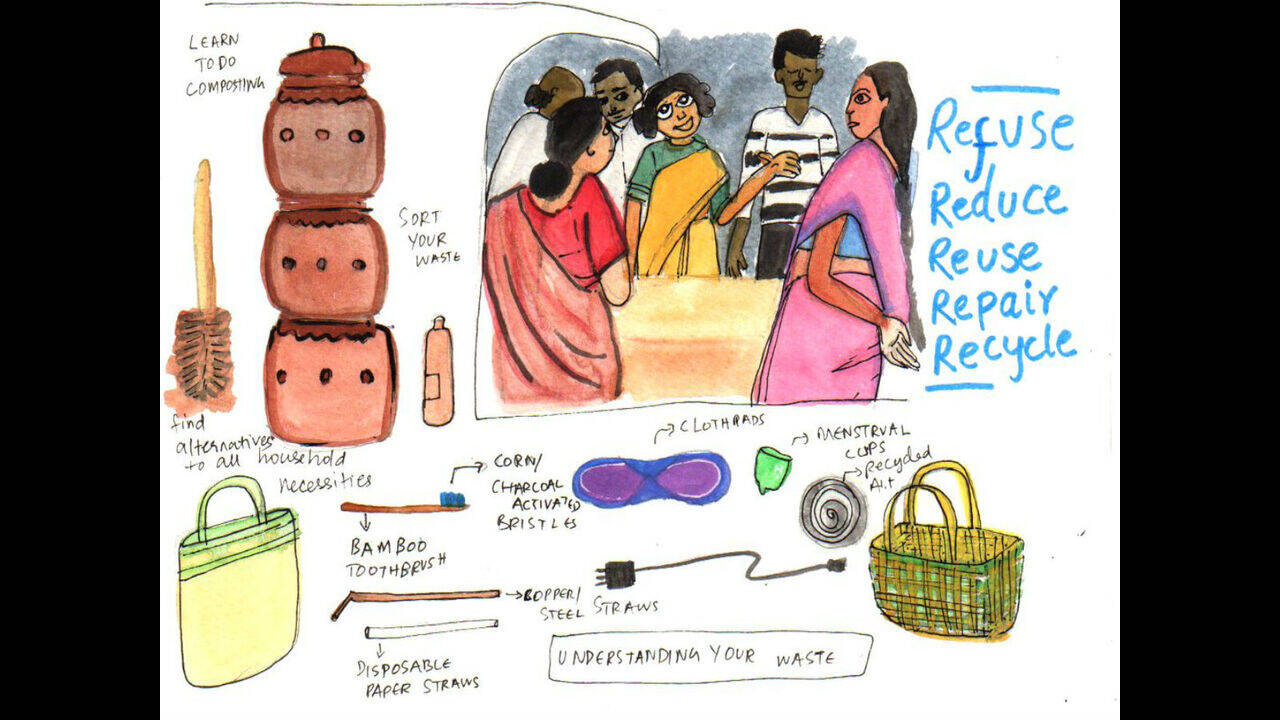 LEARN
TO DO
COMPOSTING
SORT
YOUR
WASTE
Refuse
Reduce
Reuse
Repair
Recycle
find
alternatives
to all household
necessities
CORN/
CHARCOAL
ACTIVATED
BRISTLES
BAMBOO
TOOTHBRUSH
CLOTHPADS
MENSTRUAL
CUPS
Recycled
Art
COPPER/
STEEL STRAWS
DISPOSABLE
PAPER STRAWS
UNDERSTANDING YOUR WASTE